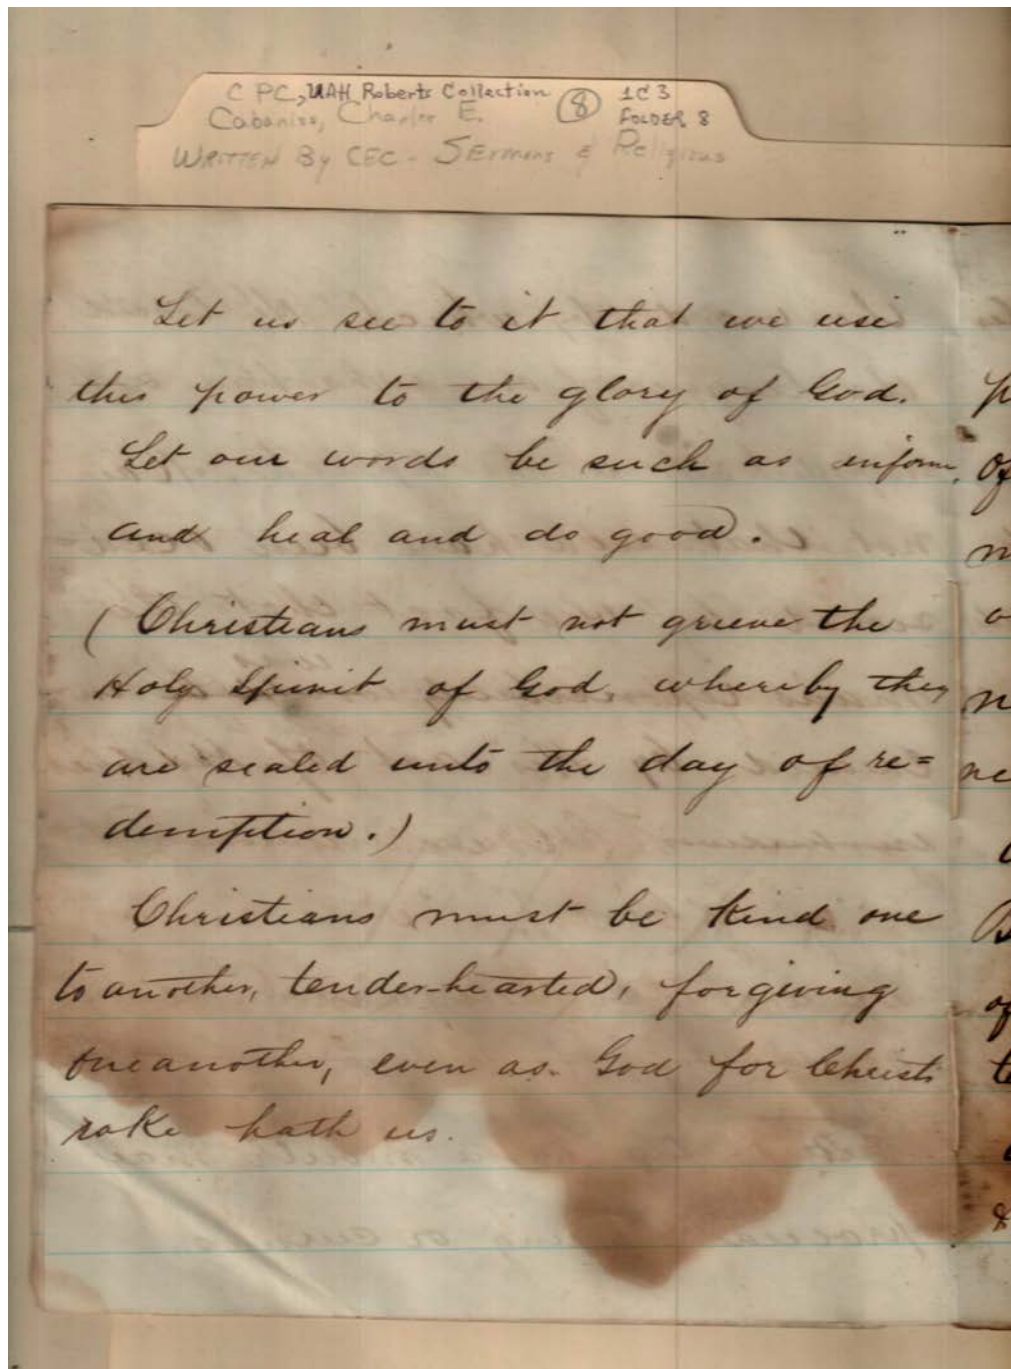 C PC, UAH Roberts Collection 8 1C3
Cabaniss, Charles E. FOLDER 8
WRITTEN By CEC - SERMONS & Religious
Let us see to it that we use
this power to the glory of God.
Let our words be such as inform,
and heal and do good.
(Christians must not grieve the
Holy Spirit of God, whereby they
are sealed unto the day of re=
demption.)
Christians must be kind one
to another, tender-hearted, forgiving
one another, even as God for Christ
sake hath us.